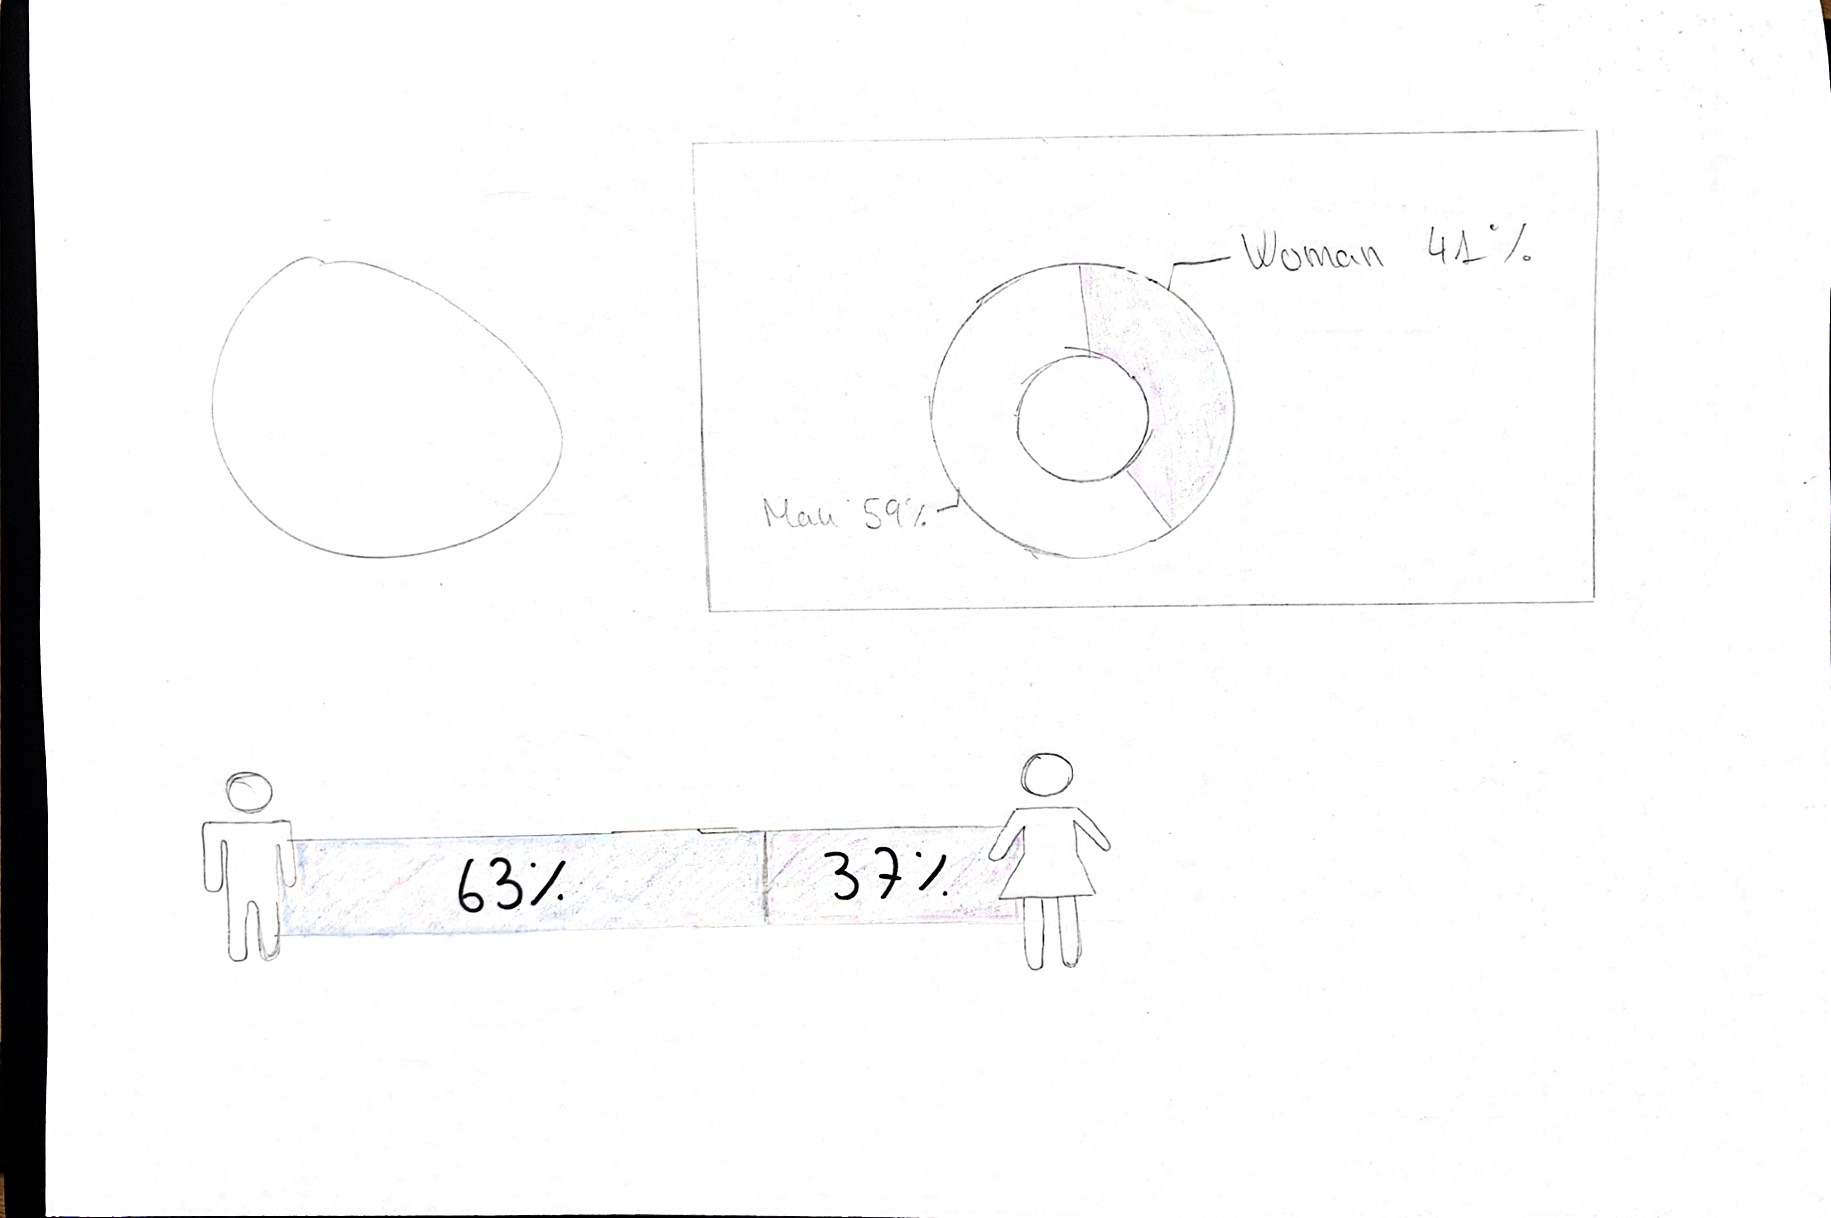 Woman 41%
Man 59%
63% 37%